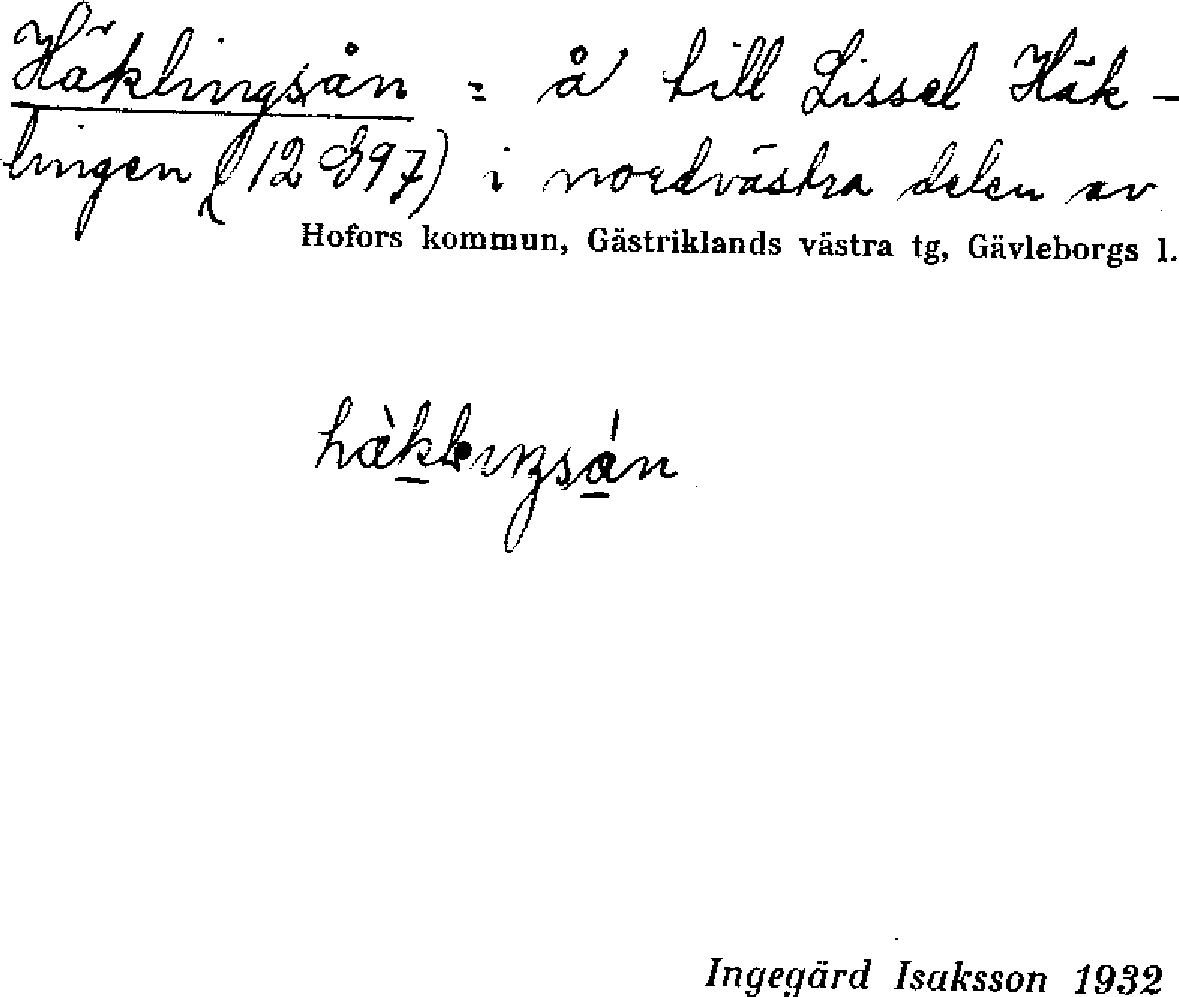 Häklingsån = å till Lissel Häk-
lingen (12 897) i nordvästra delen av
Hofors kommun, Gästriklands västra tg, Gävleborgs l.
Ingegärd Isaksson 1932